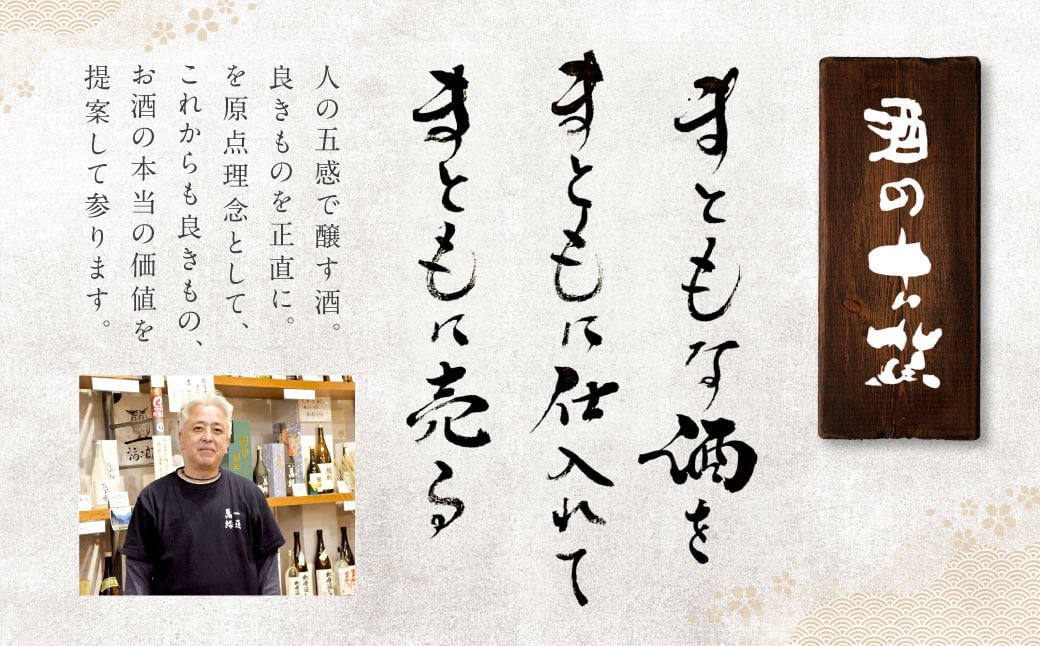 酒の十八蔵
まともな酒を
まともに仕入れて
まともに売る
人の五感で醸す酒。
良きものを正直に。
を原点理念として、
これからも良きもの、
お酒の本当の価値を
提案して参ります。